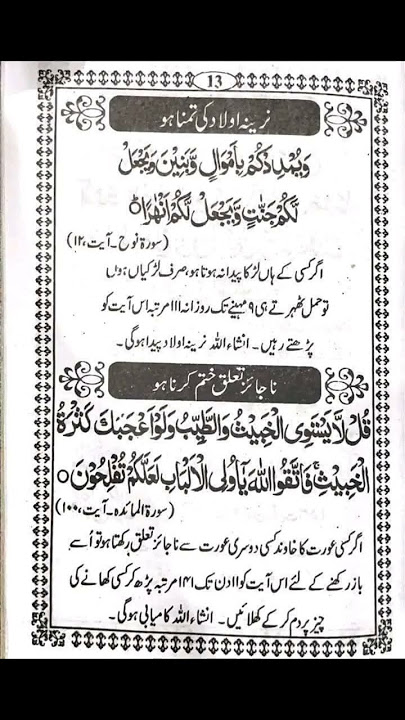 13
نرینہ اولاد کی تمنا ہو
وَيُمْدِدْكُمْ بِأَمْوَالٍ وَّبَنِيْنَ وَيَجْعَلْ
لَّكُمْ جَنّٰتٍ وَّيَجْعَلْ لَّكُمْ اَنْهٰرًا ؕ
(سورۃ نوح ۔ آیت، ۱۲)
اگر کسی کے ہاں لڑکا پیدا نہ ہوتا ہو، صرف لڑکیاں ہوں
تو حمل ٹھہرتے ہی ۹ مہینے تک روزانہ ۱۱۱ مرتبہ اس آیت کو
پڑھتے رہیں ۔ انشاء اللہ نرینہ اولاد پیدا ہوگی ۔
ناجائز تعلق ختم کرنا ہو
قُلْ لَّا يَسْتَوِى الْخَبِيْثُ وَالطَّيِّبُ وَلَوْ اَعْجَبَكَ كَثْرَةُ
الْخَبِيْثِ ۚ فَاتَّقُوا اللّٰهَ يٰٓاُولِى الْاَلْبَابِ لَعَلَّكُمْ تُفْلِحُوْنَ ○
(سورۃ المائدہ ۔ آیت، ۱۰۰)
اگر کسی عورت کا خاوند کسی دوسری عورت سے ناجائز تعلق رکھتا ہو تو اُسے
باز رکھنے کے لئے اس آیت کو ۱۱ دن تک ۱۴۱ مرتبہ پڑھ کر کسی کھانے کی
چیز پر دم کر کے کھلائیں ۔ انشاء اللہ کامیابی ہوگی ۔